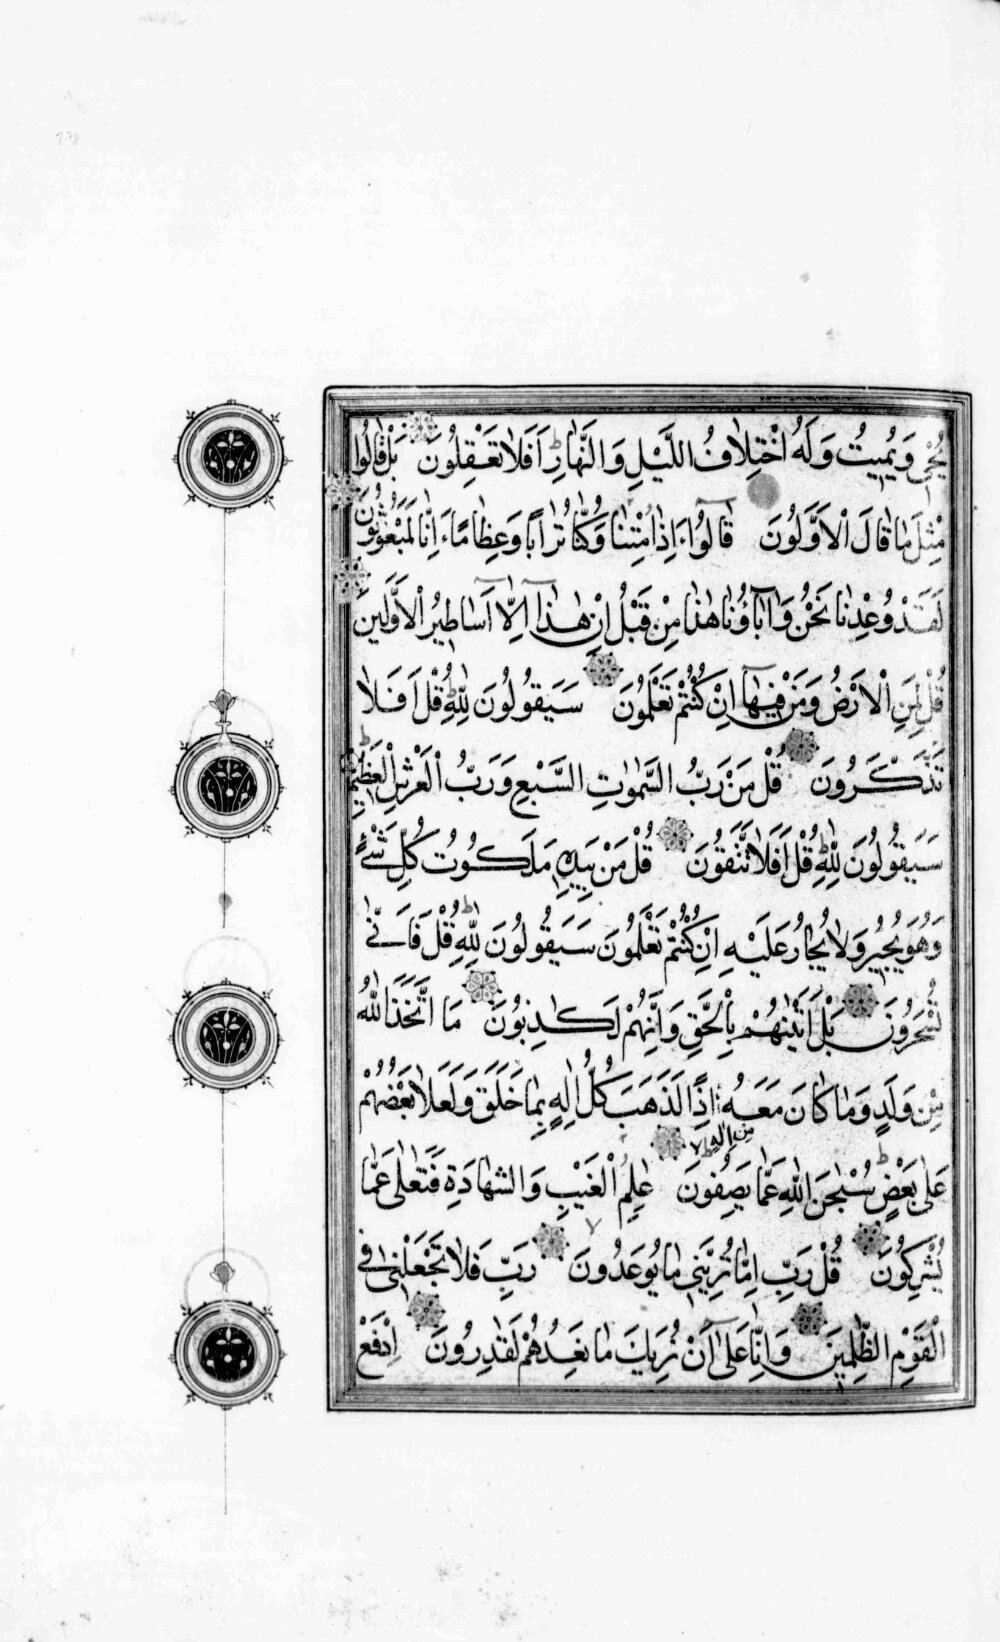 يُحْيِ وَيُمِيتُ وَلَهُ اخْتِلَافُ اللَّيْلِ وَالنَّهَارِ اَفَلَا تَعْقِلُونَ بَلْ قَالُوا
مِثْلَ مَا قَالَ الْاَوَّلُونَ قَالُوا ءَاِذَا مِتْنَا وَكُنَّا تُرَابًا وَعِظَامًا ءَاِنَّا لَمَبْعُوثُونَ
لَقَدْ وُعِدْنَا نَحْنُ وَاٰبَاؤُنَا هٰذَا مِنْ قَبْلُ اِنْ هٰذَا اِلَّا اَسَاطِيرُ الْاَوَّلِينَ
قُلْ لِمَنِ الْاَرْضُ وَمَنْ فِيهَا اِنْ كُنْتُمْ تَعْلَمُونَ سَيَقُولُونَ لِلّٰهِ قُلْ اَفَلَا
تَذَكَّرُونَ قُلْ مَنْ رَبُّ السَّمٰوَاتِ السَّبْعِ وَرَبُّ الْعَرْشِ الْعَظِيمِ
سَيَقُولُونَ لِلّٰهِ قُلْ اَفَلَا تَتَّقُونَ قُلْ مَنْ بِيَدِهِ مَلَكُوتُ كُلِّ شَيْءٍ
وَهُوَ يُجِيرُ وَلَا يُجَارُ عَلَيْهِ اِنْ كُنْتُمْ تَعْلَمُونَ سَيَقُولُونَ لِلّٰهِ قُلْ فَاَنّٰى
تُسْحَرُونَ بَلْ اَتَيْنَاهُمْ بِالْحَقِّ وَاِنَّهُمْ لَكَاذِبُونَ مَا اتَّخَذَ اللّٰهُ
مِنْ وَلَدٍ وَمَا كَانَ مَعَهُ اِذًا لَذَهَبَ كُلُّ اِلٰهٍ بِمَا خَلَقَ وَلَعَلَا بَعْضُهُمْ
مِنْ اِلٰهٍ
عَلٰى بَعْضٍ سُبْحٰنَ اللّٰهِ عَمَّا يَصِفُونَ عَالِمِ الْغَيْبِ وَالشَّهَادَةِ فَتَعَالٰى عَمَّا
يُشْرِكُونَ قُلْ رَبِّ اِمَّا تُرِيَنِّي مَا يُوعَدُونَ رَبِّ فَلَا تَجْعَلْنِي فِي
الْقَوْمِ الظَّالِمِينَ وَاِنَّا عَلٰى اَنْ نُرِيَكَ مَا نَعِدُهُمْ لَقَادِرُونَ اِدْفَعْ